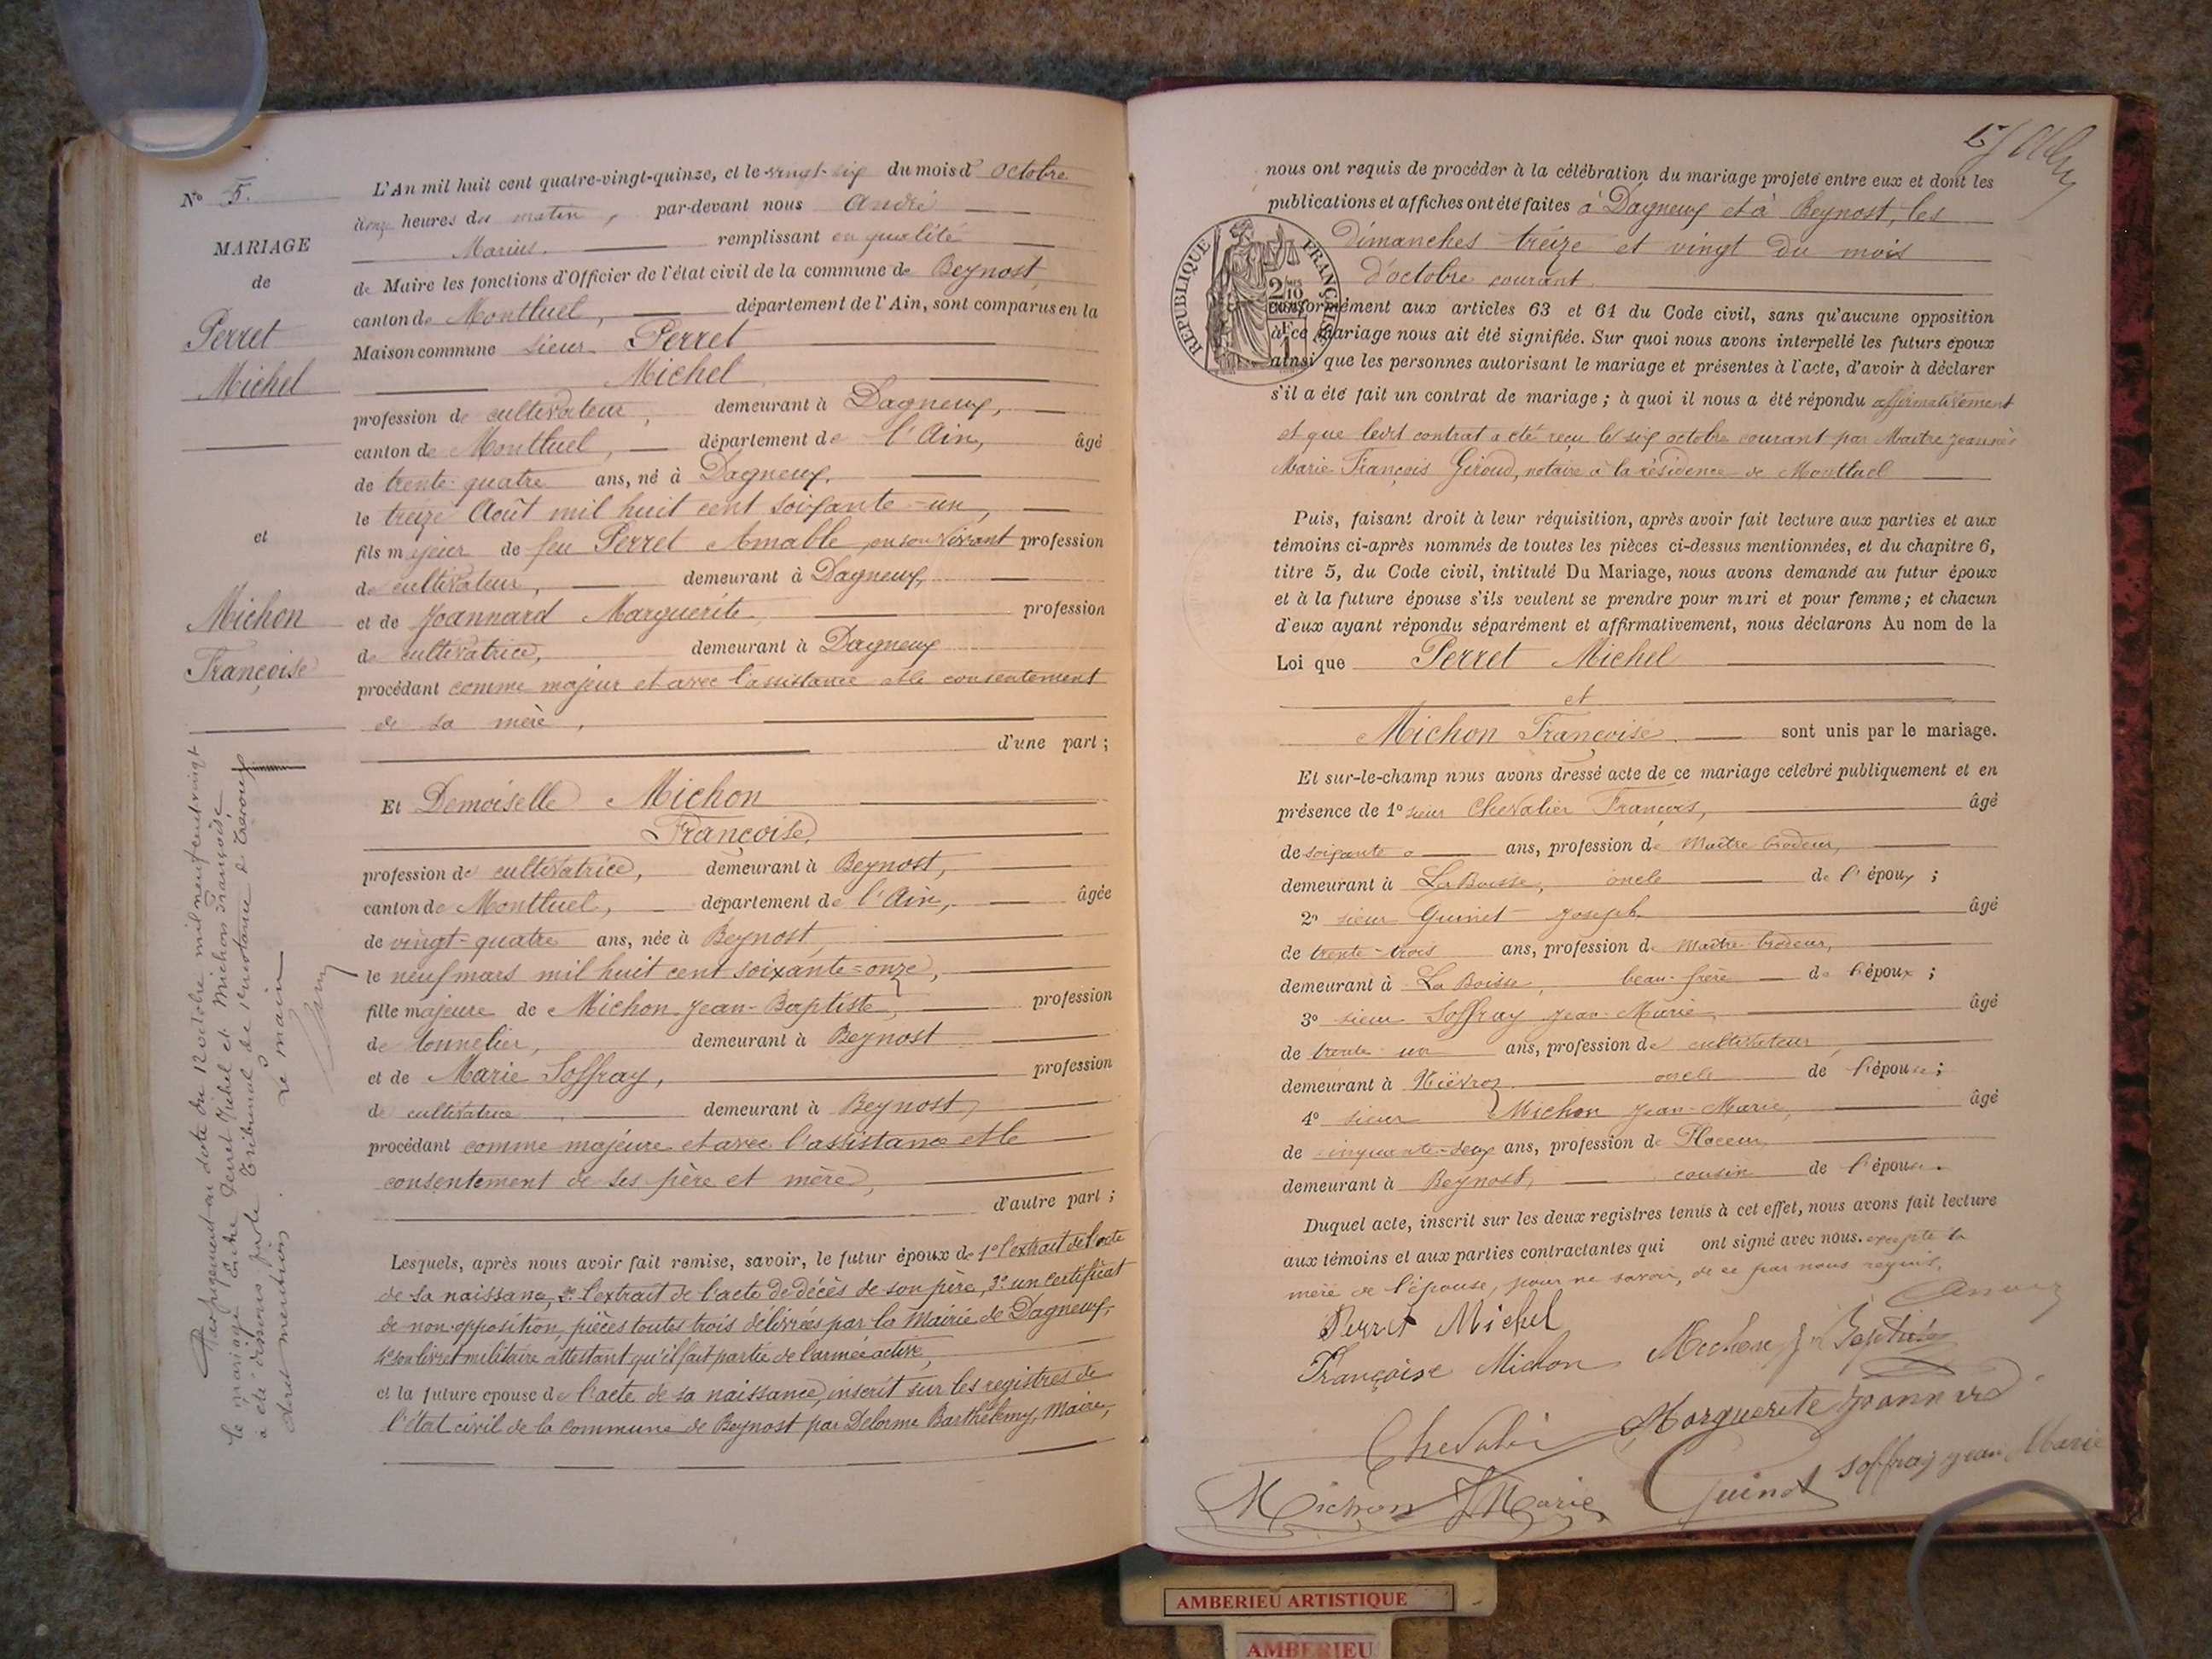 Nº 5.
MARIAGE
de
Perret
Michel
et
Michon
Françoise
Par jugement en date du 12 octobre mil neuf cent vingt
le mariage entre Perret Michel et Michon Françoise
a été dissous par le Tribunal de 1ere instance de Trévoux
dont mention. Le maire
L'An mil huit cent quatre-vingt-quinze, et le vingt-six du mois d'octobre
heures du matin, par-devant nous André
Marius. remplissant en qualité
de Maire les fonctions d'Officier de l'état civil de la commune de Beynost,
canton de Montluel, département de l'Ain, sont comparus en la
Maison commune sieur Perret
Michel
profession de cultivateur, demeurant à Dagneux,
canton de Montluel, département de l'Ain, âgé
de trente-quatre ans, né à Dagneux,
le treize Août mil huit cent soixante-un,
fils majeur de feu Perret Amable, en son vivant profession
de cultivateur, demeurant à Dagneux,
et de Joannard Marguerite profession
de cultivatrice, demeurant à Dagneux
procédant comme majeur et avec l'assistance et le consentement
de sa mère,
d'une part;
Et Demoiselle Michon
Françoise,
profession de cultivatrice, demeurant à Beynost,
canton de Montluel, département de l'Ain, âgée
de vingt-quatre ans, née à Beynost,
le neuf mars mil huit cent soixante=onze,
fille majeure de Michon Jean-Baptiste, profession
de tonnelier, demeurant à Beynost
et de Marie Soffray, profession
de cultivatrice, demeurant à Beynost,
procédant comme majeure et avec l'assistance et le
consentement de ses père et mère,
d'autre part;
Lesquels, après nous avoir fait remise, savoir, le futur époux de 1º l'extrait de l'acte
de sa naissance, 2º l'extrait de l'acte de décès de son père, 3º un certificat
de non opposition, pièces toutes trois délivrées par la Mairie de Dagneux,
4º son livret militaire attestant qu'il fait partie de l'armée active,
et la future épouse de l'acte de sa naissance, inscrit sur les registres de
l'état civil de la commune de Beynost par Delorme Barthélemy, Maire,
nous ont requis de procéder à la célébration du mariage projeté entre eux et dont les
publications et affiches ont été faites à Dagneux et à Beynost, les
dimanches treize et vingt du mois
d'octobre courant
RÉPUBLIQUE FRANÇAISE
conformément aux articles 63 et 64 du Code civil, sans qu'aucune opposition
à ce mariage nous ait été signifiée. Sur quoi nous avons interpellé les futurs époux
ainsi que les personnes autorisant le mariage et présentes à l'acte, d'avoir à déclarer
s'il a été fait un contrat de mariage; à quoi il nous a été répondu affirmativement
et que ledit contrat a été reçu le six octobre courant par Maître
Marie François Giroud, notaire à la résidence de Montluel
Puis, faisant droit à leur réquisition, après avoir fait lecture aux parties et aux
témoins ci-après nommés de toutes les pièces ci-dessus mentionnées, et du chapitre 6,
titre 5, du Code civil, intitulé Du Mariage, nous avons demandé au futur époux
et à la future épouse s'ils veulent se prendre pour mari et pour femme; et chacun
d'eux ayant répondu séparément et affirmativement, nous déclarons Au nom de la
Loi que Perret Michel
et
Michon Françoise sont unis par le mariage.
Et sur-le-champ nous avons dressé acte de ce mariage célébré publiquement et en
présence de 1º sieur Chevalier François, âgé
de soixante ans, profession de Maître brodeur,
demeurant à La Boisse, oncle de l'époux;
2º sieur Guinet Joseph âgé
de trente-trois ans, profession de Maître-brodeur,
demeurant à La Boisse, beau-frère de l'époux;
3º sieur Soffray Jean-Marie, âgé
de trente un ans, profession de cultivateur,
demeurant à Niévroz oncle de l'épouse;
4º sieur Michon Jean-Marie, âgé
de cinquante-deux ans, profession de Placeur
demeurant à Beynost, cousin de l'épouse.
Duquel acte, inscrit sur les deux registres tenus à cet effet, nous avons fait lecture
aux témoins et aux parties contractantes qui ont signé avec nous. excepté la
mère de l'épouse, pour ne savoir, de ce par nous requis.
Perret Michel
Françoise Michon Michon Jn Baptiste
Chevalier Marguerite Joannard
Michon J Marie Guinet Soffray jean Marie
AMBERIEU ARTISTIQUE
AMBERIEU